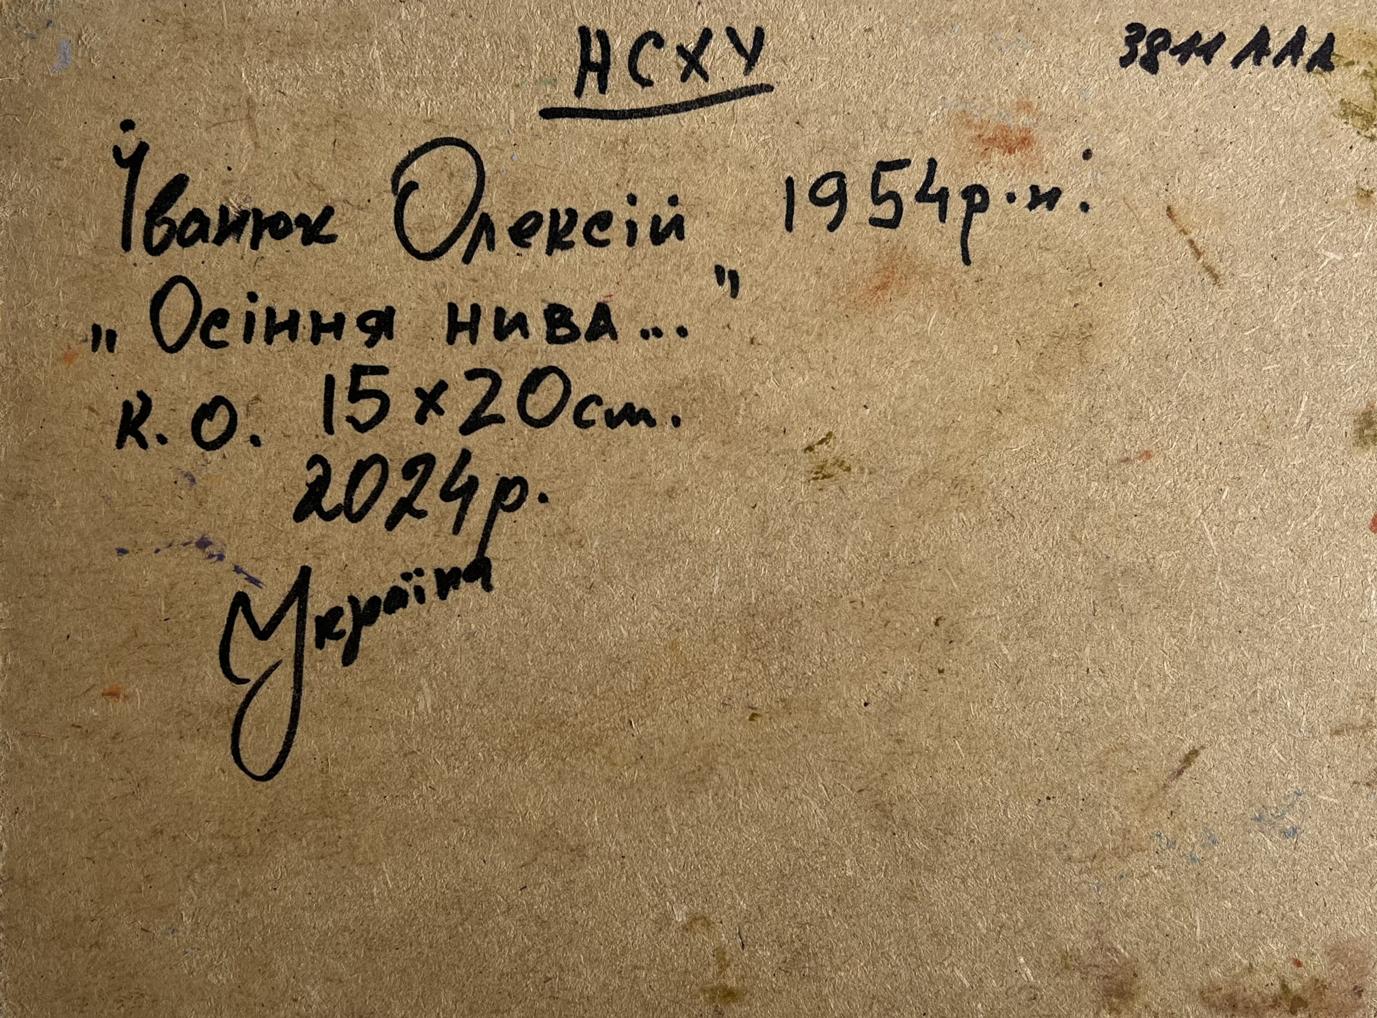 НСХУ
3811 ААА
Іванюк Олексій 1954р.н.
„Осіння нива..."
к.о. 15х20см.
2024р.
Україна